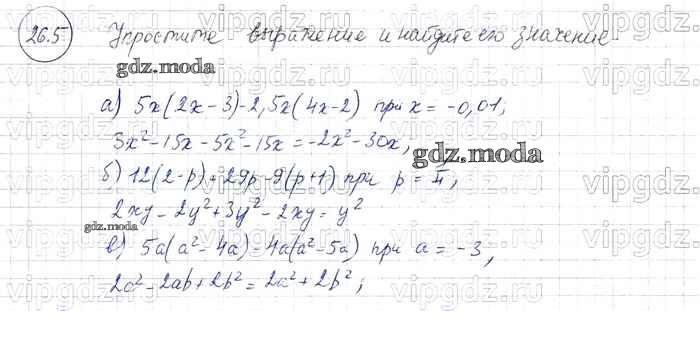 26.5 Упростите выражение и найдите его значение.
gdz.moda
а) 5x(2x-3)-2,5x(4x-2) при x = -0,01;
3x²-15x-5x²-15x=-2x²-30x,
gdz.moda
б) 12(2-p)+29p-9(p+1) при p =
2xy-2y²+3y²-2xy=y²
gdz.moda
в) 5a(a²-4a)-4a(a²-5a) при a = -3,
2a²-2ab+2b²=2a²+2b²;
vipgdz.com